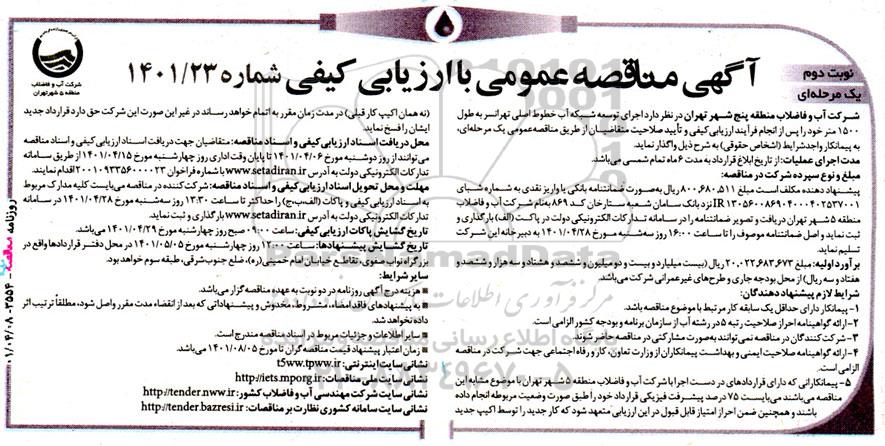 نوبت دوم
یک مرحله‌ای
آگهی مناقصه عمومی با ارزیابی کیفی شماره ۱۴۰۱/۲۳
شرکت آب و فاضلاب
منطقه ۵ شهر تهران
شرکت آب و فاضلاب منطقه پنج شهر تهران در نظر دارد اجرای توسعه شبکه آب خطوط اصلی تهرانسر به طول
۱۵۰۰ متر خود را پس از انجام فرآیند ارزیابی کیفی و تأیید صلاحیت متقاضیان از طریق مناقصه عمومی یک مرحله‌ای،
به پیمانکار واجد شرایط (اشخاص حقوقی) به شرح ذیل واگذار نماید.
مدت اجرای عملیات: از تاریخ ابلاغ قرارداد به مدت ۶ ماه تمام شمسی می‌باشد.
مبلغ و نوع سپرده شرکت در مناقصه:
پیشنهاد دهنده مکلف است مبلغ ۸۰۰,۶۸۰,۵۱۱ ریال به‌صورت ضمانتنامه بانکی یا واریز نقدی به شماره شبای
IR۱۳۰۵۶۰۰۸۶۹۰۴۰۰۰۴۰۲۵۳۷۰۰۱ نزد بانک سامان شعبه ستارخان کد ۸۶۹ به‌نام شرکت آب و فاضلاب
منطقه ۵ شهر تهران دریافت و تصویر ضمانتنامه را در سامانه تدارکات الکترونیکی دولت در پاکت (الف) بارگذاری و
ثبت نماید و اصل ضمانتنامه موصوف را تا ساعت ۱۶:۰۰ روز سه‌شنبه مورخ ۱۴۰۱/۰۴/۲۸ به دبیرخانه این شرکت
تسلیم نماید
برآورد اولیه: مبلغ ۲۰,۰۲۲,۶۸۳,۶۷۳ ریال (بیست میلیارد و بیست و دو میلیون و ششصد و هشتاد و سه هزار و ششصد و
هفتاد و سه ریال) از محل بودجه جاری و طرح‌های غیرعمرانی شرکت می‌باشد.
شرایط لازم پیشنهاد دهندگان:
۱- پیمانکار دارای حداقل یک سابقه کار مرتبط با موضوع مناقصه باشد.
۲- ارائه گواهینامه احراز صلاحیت رتبه ۵ در رشته آب از سازمان برنامه و بودجه کشور الزامی است.
۳- شرکت کنندگان در مناقصه نمی‌توانند به‌صورت مشارکتی در مناقصه حاضر شوند.
۴- ارائه گواهینامه صلاحیت ایمنی و بهداشت پیمانکاران از وزارت تعاون، کار و رفاه اجتماعی جهت شرکت در مناقصه
الزامی است.
۵- پیمانکارانی که دارای قراردادهای در دست اجرا با شرکت آب و فاضلاب منطقه ۵ شهر تهران با موضوع مشابه این
مناقصه می‌باشند می‌بایست ۷۵ درصد پیشرفت فیزیکی قرارداد خود را طبق صورت وضعیت مربوطه انجام داده
باشند و همچنین ضمن احراز امتیاز قابل قبول در این ارزیابی متعهد شود که کار جدید را توسط اکیپ جدید
(نه همان اکیپ کار قبلی) در مدت زمان مقرر به اتمام خواهد رساند در غیر این صورت این شرکت حق دارد قرارداد جدید
ایشان را فسخ نماید
محل دریافت اسناد ارزیابی کیفی و اسناد مناقصه: متقاضیان جهت دریافت اسناد ارزیابی کیفی و اسناد مناقصه
می‌توانند از روز دوشنبه مورخ ۱۴۰۱/۰۴/۰۶ تا پایان وقت اداری روز چهارشنبه مورخ ۱۴۰۱/۰۴/۱۵ از طریق سامانه
تدارکات الکترونیکی دولت به آدرس www.setadiran.ir با شماره فراخوان ۲۰۰۱۰۹۳۳۵۶۰۰۰۰۲۳ اقدام نمایند.
مهلت و محل تحویل اسناد ارزیابی کیفی و اسناد مناقصه: شرکت کننده در مناقصه می‌بایست کلیه مدارک مربوط
به اسناد ارزیابی کیفی و پاکات (الف،ب،ج) را حداکثر تا ساعت ۱۳:۳۰ روز سه‌شنبه مورخ ۱۴۰۱/۰۴/۲۸ در سامانه
تدارکات الکترونیکی دولت به آدرس www.setadiran.ir بارگذاری و ثبت نماید.
تاریخ گشایش کیفی و پاکات ارزیابی کیفی: ساعت ۰۹:۰۰ صبح روز چهارشنبه مورخ ۱۴۰۱/۰۴/۲۹ می‌باشد.
تاریخ گشایش پیشنهادها: ساعت ۱۲:۰۰ روز چهارشنبه مورخ ۱۴۰۱/۰۵/۰۵ در محل دفتر قراردادها واقع در
بزرگراه نواب صفوی، تقاطع خیابان امام خمینی(ره)، ضلع جنوب‌شرقی، طبقه سوم خواهد بود.
سایر شرایط:
■ هزینه درج آگهی روزنامه در دو نوبت به عهده مناقصه‌گزار می‌باشد.
■ به پیشنهادهای فاقد امضاء، مشروط، مخدوش و پیشنهاداتی که بعد از انقضاء مدت مقرر واصل شود، مطلقاً ترتیب اثر
داده نخواهد شد.
■ سایر اطلاعات و جزئیات مربوط در اسناد مناقصه مندرج است.
■ زمان اعتبار پیشنهاد قیمت مناقصه‌گران تا مورخ ۱۴۰۱/۰۸/۰۵ می‌باشد.
نشانی سایت اینترنتی: t5ww.tpww.ir
نشانی سایت ملی مناقصات: http://iets.mporg.ir
نشانی سایت شرکت مهندسی آب و فاضلاب کشور: http://tender.nww.ir
نشانی سایت سامانه کشوری نظارت بر مناقصات: http://tender.bazresi.ir
روزنامه مناقصه - ۳۵۵۴ - ۰۱/۰۴/۰۸